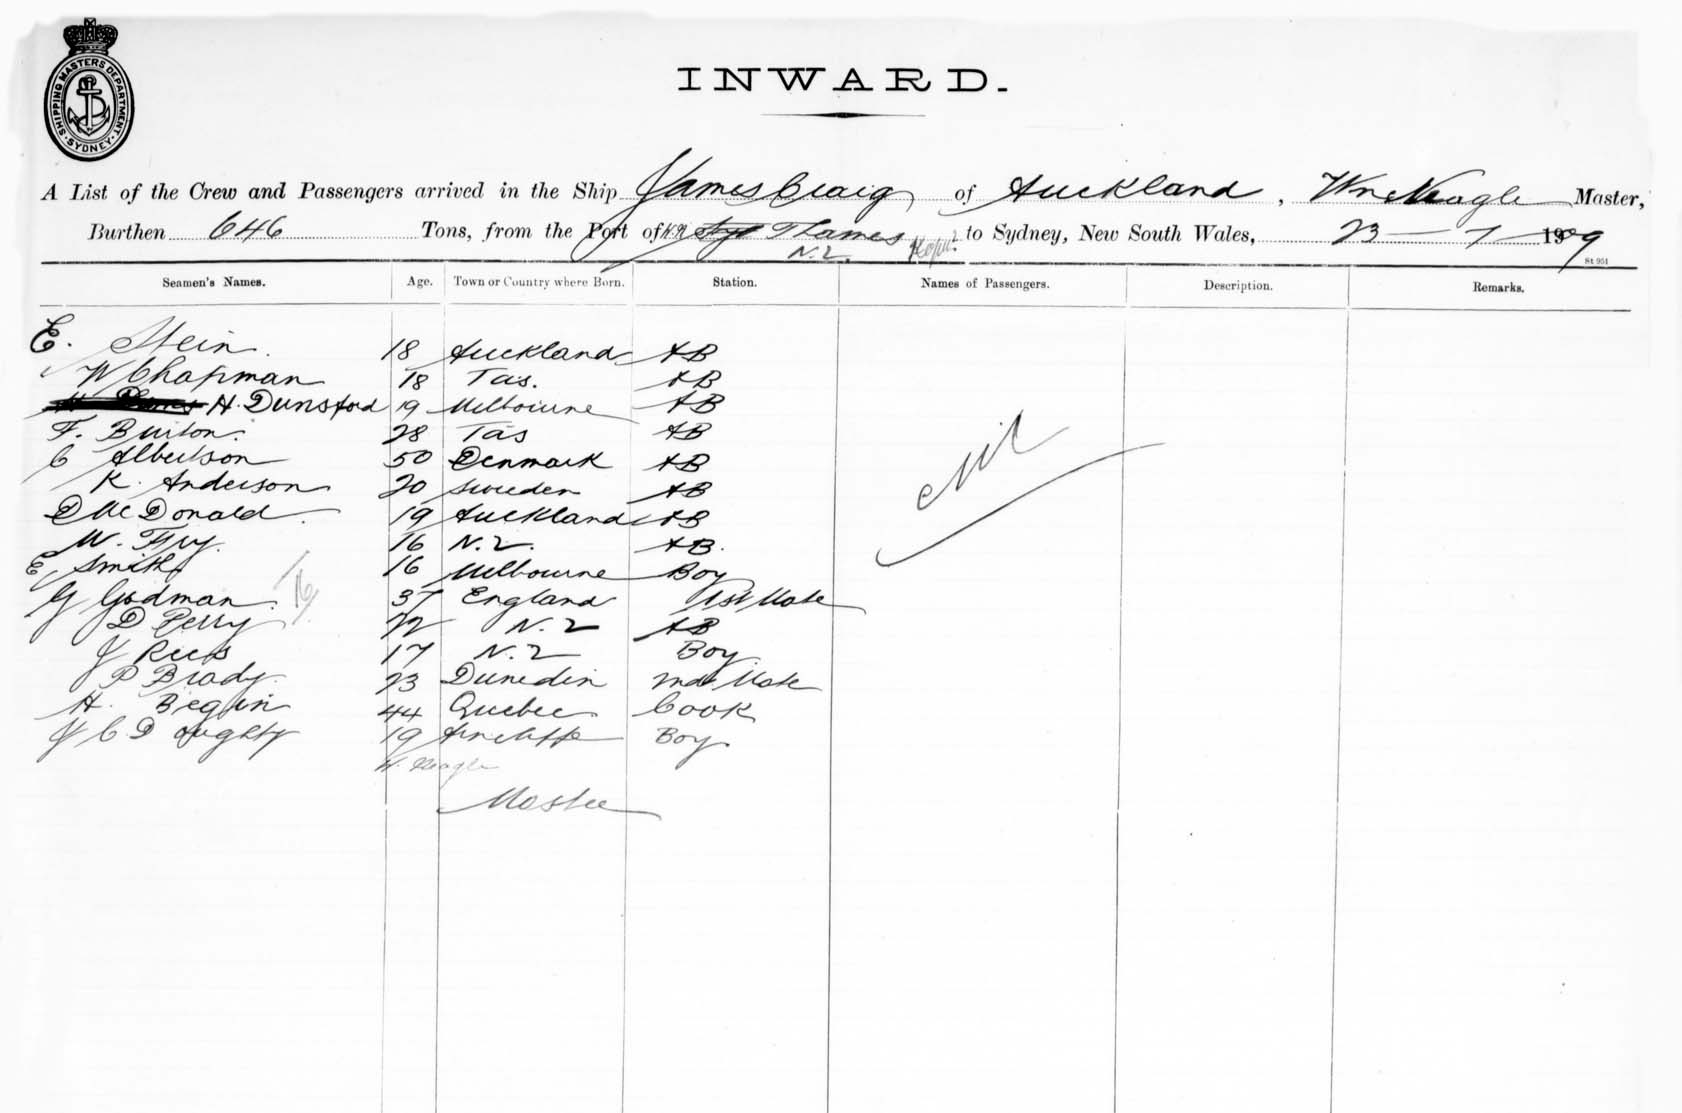 SHIPPING MASTERS DEPARTMENT. SYDNEY.
INWARD.
A List of the Crew and Passengers arrived in the Ship James Craig of Auckland, Wm Neagle Master,
Burthen 646 Tons, from the Port of Thames to Sydney, New South Wales, 23 - 7 - 1909
N.Z.
St 951
Seamen's Names. Age. Town or Country where Born. Station. Names of Passengers. Description. Remarks.
E. Stein. 18 Auckland AB
W Chapman 18 Tas. AB
H. Dunsford 19 Melbourne AB
F. Burton. 28 Tas AB
C Albertson 50 Denmark AB
K. Anderson 20 Sweden AB
Nil
D McDonald. 19 Auckland AB
W. Fry. 16 N.Z. AB.
E Smith 16 Melbourne Boy
G Godman. 37 England 1st Mate
16
D Perry 22 N.Z AB
J Rees 17 N.Z Boy.
P Brady. 23 Dunedin 2nd Mate
H. Beguin 44 Quebec Cook
J C Doughty 19 Boy.
W. Neagle
Master